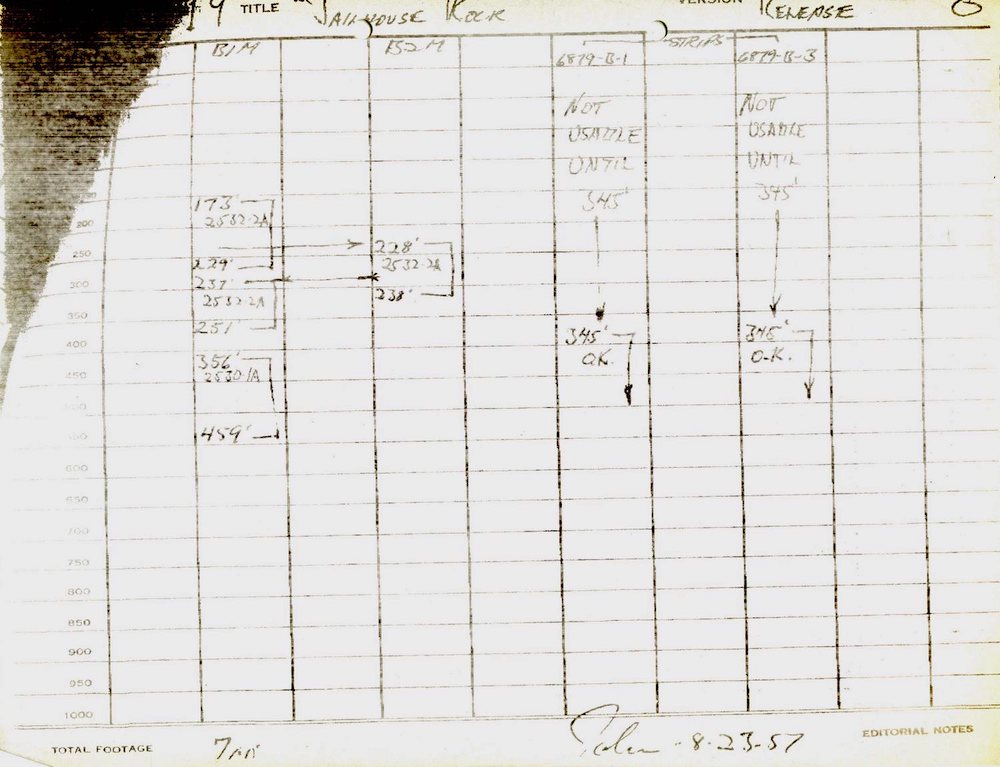 9 TITLE JAILHOUSE ROCK VERSION RELEASE
B1M B2M STRIPS
6879-B-1 6879-B-3
NOT NOT
USABLE USABLE
UNTIL UNTIL
345' 345'
173'
2532-2A
200
228'
250
229' 2532-2A
237'
300
2532-2A 238'
350
251' 345' 345'
400
O.K. O.K.
356'
2530-1A
450
500
459'
550
600
650
700
750
800
850
900
950
1000
TOTAL FOOTAGE 8-23-57 EDITORIAL NOTES